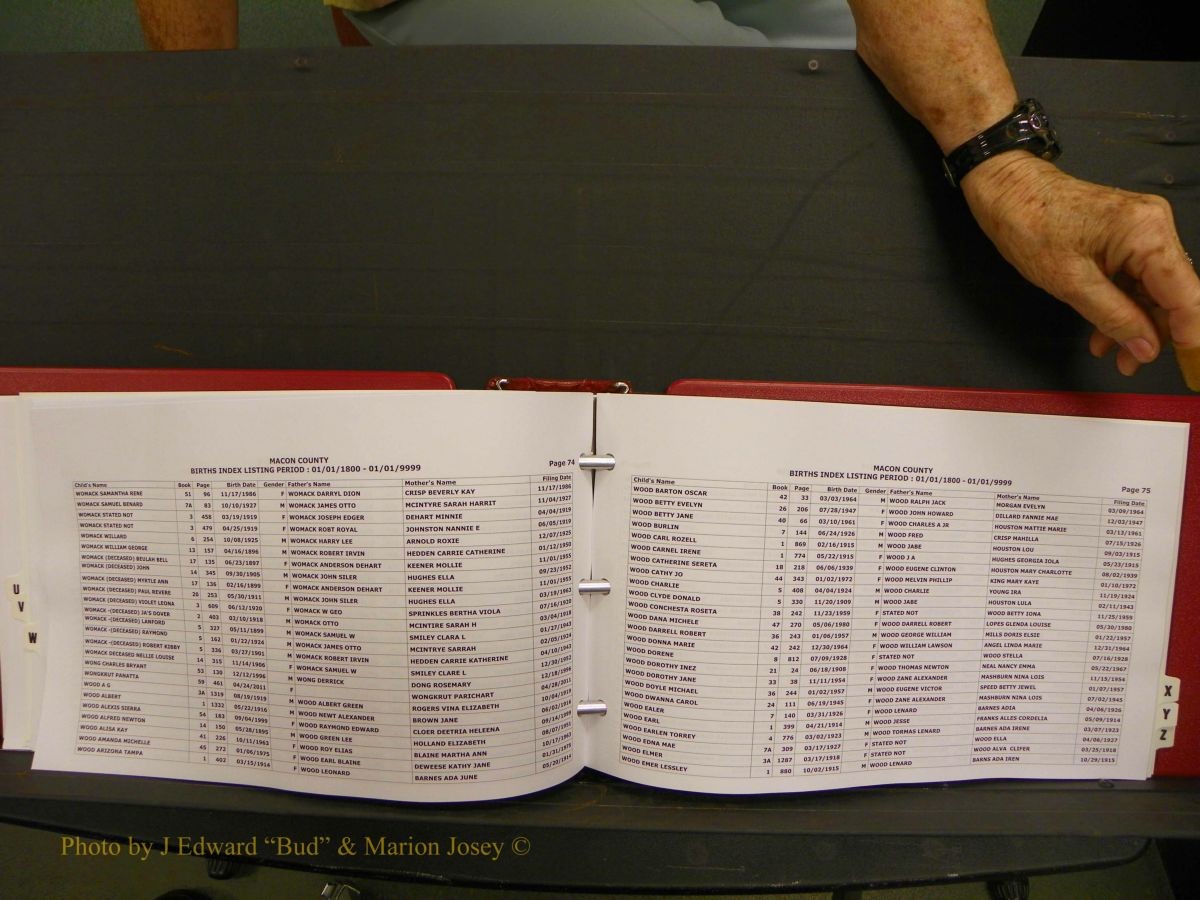 MACON COUNTY
BIRTHS INDEX LISTING PERIOD : 01/01/1800 - 01/01/9999
Page 74
Child's Name Book Page Birth Date Gender Father's Name Mother's Name Filing Date
WOMACK SAMANTHA RENE 51 96 11/17/1986 F WOMACK DARRYL DION CRISP BEVERLY KAY 11/17/1986
WOMACK SAMUEL BENARD 7A 83 10/10/1927 M WOMACK JAMES OTTO MCINTYRE SARAH HARRIT 11/04/1927
WOMACK STATED NOT 3 458 03/19/1919 F WOMACK JOSEPH EDGER DEHART MINNIE 04/04/1919
WOMACK STATED NOT 3 479 04/25/1919 F WOMACK ROBT ROYAL JOHNSTON NANNIE E 06/05/1919
WOMACK WILLARD 6 254 10/08/1925 M WOMACK HARRY LEE ARNOLD ROXIE 12/07/1925
WOMACK WILLIAM GEORGE 13 157 04/16/1896 M WOMACK ROBERT IRVIN HEDDEN CARRIE CATHERINE 01/12/1950
WOMACK (DECEASED) BEULAH BELL 17 135 06/23/1897 F WOMACK ANDERSON DEHART KEENER MOLLIE 11/01/1955
WOMACK (DECEASED) JOHN 14 345 09/30/1905 M WOMACK JOHN SILER HUGHES ELLA 09/23/1952
WOMACK (DECEASED) MYRTLE ANN 17 136 02/16/1899 F WOMACK ANDERSON DEHART KEENER MOLLIE 11/01/1955
WOMACK (DECEASED) PAUL REVERE 26 253 05/30/1911 M WOMACK JOHN SILER HUGHES ELLA 03/19/1963
WOMACK (DECEASED) VIOLET LEONA 3 609 06/12/1920 F WOMACK W GEO SPRINKLES BERTHA VIOLA 07/16/1920
WOMACK -(DECEASED) JA'S GOVER 2 403 02/10/1918 M WOMACK OTTO MCINTIRE SARAH H 03/04/1918
WOMACK -(DECEASED) LANFORD 5 327 05/11/1899 M WOMACK SAMUEL W SMILEY CLARA L 01/27/1943
WOMACK -(DECEASED) RAYMOND 5 162 01/22/1924 M WOMACK JAMES OTTO MCINTRYE SARRAH 02/05/1924
WOMACK -(DECEASED) ROBERT KIBBY 5 336 03/27/1901 M WOMACK ROBERT IRVIN HEDDEN CARRIE KATHERINE 04/10/1943
WOMACK DECEASED NELLIE LOUISE 14 315 11/14/1906 F WOMACK SAMUEL W SMILEY CLARE L 12/30/1952
WONG CHARLES BRYANT 53 130 12/12/1996 M WONG DERRICK DONG ROSEMARY 12/18/1996
WONGKUT PANATTA 59 461 04/24/2011 F WONGKUT PARICHART 04/28/2011
WOOD A G 3A 1319 08/19/1919 M WOOD ALBERT GREEN ROGERS VINA ELIZABETH 10/04/1919
WOOD ALBERT 1 1332 05/22/1916 M WOOD NEWT ALEXANDER BROWN JANE 06/02/1916
WOOD ALEXIS SIERRA 54 183 09/04/1999 F WOOD RAYMOND EDWARD CLOER DEETRIA HELEENA 09/14/1999
WOOD ALFRED NEWTON 14 150 05/28/1895 M WOOD GREEN LEE HOLLAND ELIZABETH 08/07/1951
WOOD ALISA KAY 41 226 10/11/1963 F WOOD ROY ELIAS BLAINE MARTHA ANN 10/17/1963
WOOD AMANDA MICHELLE 45 272 01/06/1975 F WOOD EARL BLAINE DEWEESE KATHY JANE 01/31/1975
WOOD ARIZONA TAMPA 1 402 03/15/1914 F WOOD LEONARD BARNES ADA JUNE 05/20/1914
MACON COUNTY
BIRTHS INDEX LISTING PERIOD : 01/01/1800 - 01/01/9999
Page 75
Child's Name Book Page Birth Date Gender Father's Name Mother's Name Filing Date
WOOD BARTON OSCAR 42 33 03/03/1964 M WOOD RALPH JACK MORGAN EVELYN 03/09/1964
WOOD BETTY EVELYN 26 206 07/28/1947 F WOOD JOHN HOWARD DILLARD FANNIE MAE 12/03/1947
WOOD BETTY JANE 40 66 03/10/1961 F WOOD CHARLES A JR HOUSTON MATTIE MARIE 03/13/1961
WOOD BURLIN 7 144 06/24/1926 M WOOD FRED CRISP MAHILLA 07/15/1926
WOOD CARL ROZELL 1 869 02/16/1915 M WOOD JABE HOUSTON LOU 09/03/1915
WOOD CARNEL IRENE 1 774 05/22/1915 F WOOD J A HUGHES GEORGIA IOLA 05/23/1915
WOOD CATHERINE SERETA 18 218 06/06/1939 F WOOD EUGENE CLINTON HOUSTON MARY CHARLOTTE 08/02/1939
WOOD CATHY JO 44 343 01/02/1972 F WOOD MELVIN PHILLIP KING MARY KAYE 01/10/1972
WOOD CHARLIE 5 408 04/04/1924 M WOOD CHARLIE YOUNG IRA 11/19/1924
WOOD CLYDE DONALD 5 330 11/20/1909 M WOOD JABE HOUSTON LULA 02/11/1943
WOOD CONCHESTA ROSETA 38 242 11/23/1959 F STATED NOT WOOD BETTY IONA 11/25/1959
WOOD DANA MICHELE 47 270 05/06/1980 F WOOD DARRELL ROBERT LOPES GLENDA LOUISE 05/30/1980
WOOD DARRELL ROBERT 36 243 01/06/1957 M WOOD GEORGE WILLIAM MILLS DORIS ELSIE 01/22/1957
WOOD DONNA MARIE 42 242 12/30/1964 F WOOD WILLIAM LAWSON ANGEL LINDA MARIE 12/31/1964
WOOD DORENE 8 812 07/09/1928 F STATED NOT WOOD STELLA 07/16/1928
WOOD DOROTHY INEZ 21 24 06/18/1908 F WOOD THOMAS NEWTON NEAL NANCY EMMA 05/22/1967
WOOD DOROTHY JANE 33 38 11/11/1954 F WOOD ZANE ALEXANDER MASHBURN NINA LOIS 11/15/1954
WOOD DOYLE MICHAEL 36 244 01/02/1957 M WOOD EUGENE VICTOR SPEED BETTY JEWEL 01/07/1957
WOOD DWANNA CAROL 24 111 06/19/1945 F WOOD ZANE ALEXANDER MASHBURN NINA LOIS 07/02/1945
WOOD EALER 7 140 03/31/1926 F WOOD LENARD BARNES ADIA 04/06/1926
WOOD EARL 1 399 04/21/1914 M WOOD JESSE FRANKS ALLES CORDELIA 05/09/1914
WOOD EARLEN TORREY 4 776 03/02/1923 M WOOD TORMAS LENARD BARNES ADA IRENE 03/07/1923
WOOD EDNA MAE 7A 309 03/17/1927 F STATED NOT WOOD ELLA 04/06/1927
WOOD ELMER 3A 1287 03/17/1918 F STATED NOT WOOD ALVA CLIFER 03/25/1918
WOOD EMER LESSLEY 1 880 10/02/1915 M WOOD LENARD BARNS ADA IREN 10/29/1915
U
V
W
X
Y
Z
Photo by J Edward “Bud” & Marion Josey ©